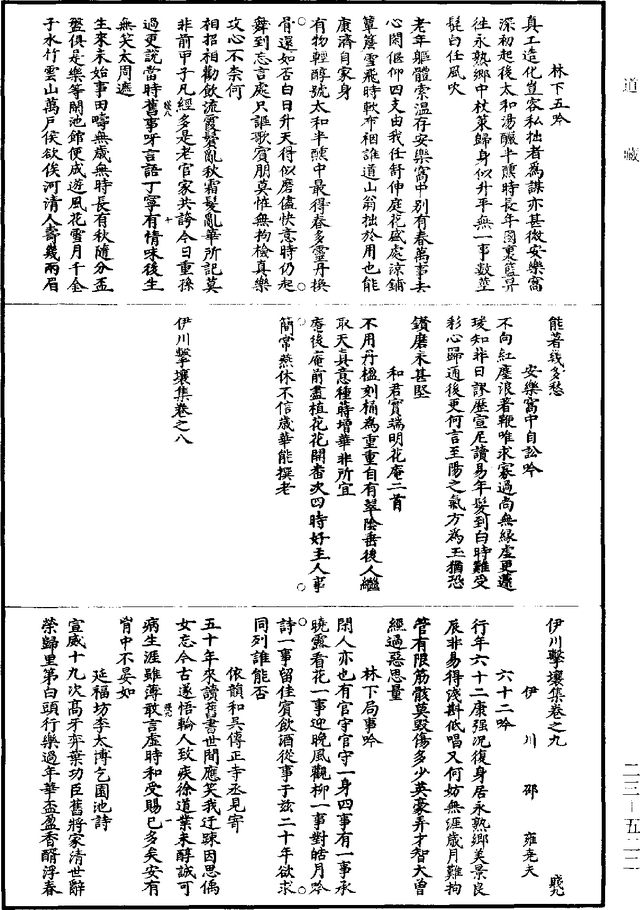 道藏
林下五吟
真工造化豈容私拙者為謀亦甚微安樂窩
深初起後太和湯釅半醺時長年國裏籃舁
往永熟鄉中杖策歸身似升平無一事數莖
髭白任風吹
老年軀體索溫存安樂窩中別有春萬事去
心閑偃仰四支由我任舒伸庭花盛處涼鋪
簟簷雪飛時軟布裀誰道山翁拙於用也能
康濟自家身
有物輕醇號太和半醺中最得春多靈丹換
骨還如否白日升天得似麼儘快意時仍起
舞到忘言處只謳歌賓朋莫怪無拘檢真樂
攻心不柰何
相招相勸飲流霞鬢亂秋霜髮亂華所記莫
非前甲子凡經多是老官家共誇今日重孫
過更說當時舊事呀言語丁寧有情味後生
無笑太周遮
生來未始事田疇無歲無時長有秋隨分盃
盤俱是樂等閑池館便成遊風花雪月千金
子水竹雲山萬戶侯欲俟河清人壽幾兩眉
能著幾多愁
安樂窩中自訟吟
不向紅塵浪著鞭唯求寡過尚無緣虛更蘧
瑗知非日謬歷宣尼讀易年髮到白時難受
彩心歸通後更何言至陽之氣方為玉猶恐
鑽磨未甚堅
和君實端明花庵二首
不用丹楹刻桷為重重自有翠陰垂後人繼
取天真意種蒔增華非所宜
庵後庵前盡植花花開番次四時好主人事
簡常燕休不信歲華能撰老
伊川擊壤集卷之八
伊川擊壤集卷之九 賤九
伊川邵雍堯夫
六十二吟
行年六十二康強況復身居永熟鄉美景良
辰非易得淺斟低唱又何妨無涯歲月難拘
管有限筋骸莫毀傷多少英豪弄才智大曾
經過惡思量
林下局事吟
閑人亦也有官守官守一身四事有一事承
曉露看花一事迎晚風觀柳一事對皓月吟
詩一事留佳賓飲酒從事于茲二十年欲求
同列誰能否
依韻和吳傳正寺丞見寄
五十年來讀舊書世間應笑我迂疎因思偶
女忘今古遂悟輪人致疾徐道業未醇誠可
病生涯雖薄敢言虛時和受賜已多矣安有
胷中不晏如
延福坊李太博乞園池詩
宣威十九次髙牙弈葉功臣舊將家清世辭
榮歸里第白頭行樂過年華盃盈香醑浮春
二三—五二二